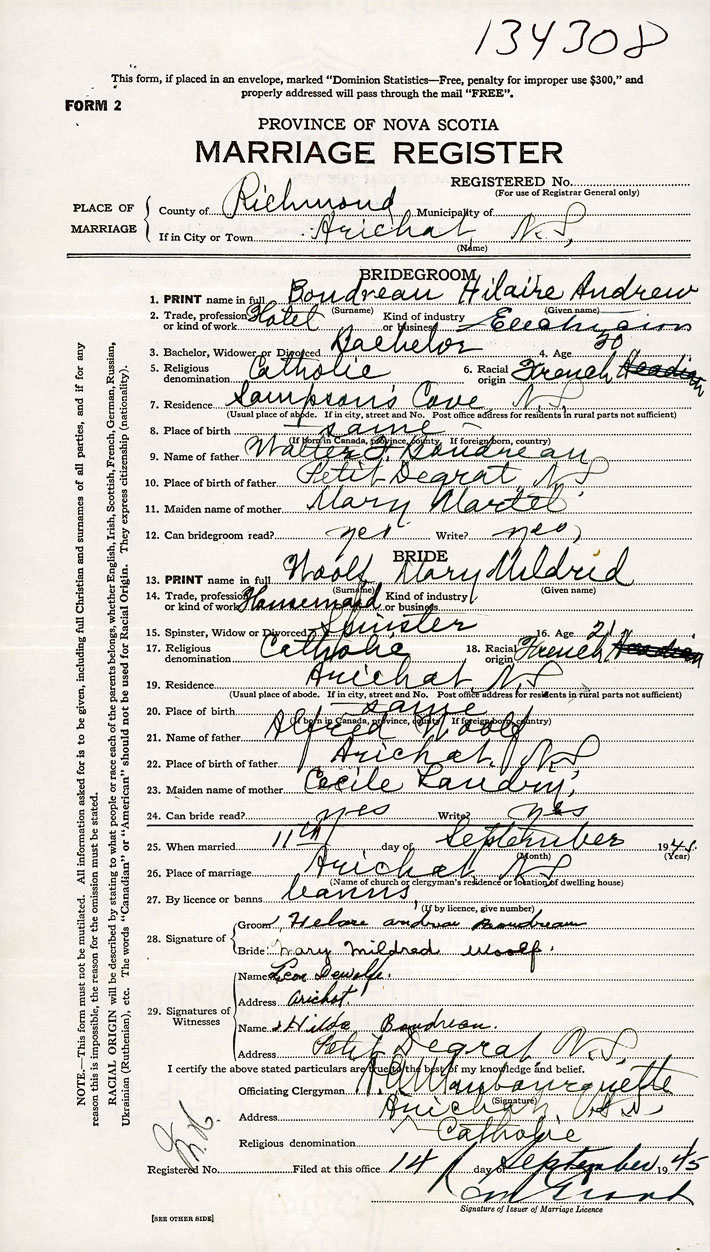 134308
This form, if placed in an envelope, marked "Dominion Statistics—Free, penalty for improper use $300," and
properly addressed will pass through the mail "FREE".
FORM 2
PROVINCE OF NOVA SCOTIA
MARRIAGE REGISTER
REGISTERED No.
(For use of Registrar General only)
PLACE OF MARRIAGE
County of Richmond Municipality of
If in City or Town Arichat N.S.
(Name)
BRIDEGROOM
1. PRINT name in full Boudreau Hilaire Andrew
(Surname) (Given name)
2. Trade, profession or kind of work Hotel Kind of industry or business Electrician
3. Bachelor, Widower or Divorced Bachelor 4. Age 30
5. Religious denomination Catholic 6. Racial origin French Acadian
7. Residence Sampson's Cove N.S.
(Usual place of abode. If in city, street and No. Post office address for residents in rural parts not sufficient)
8. Place of birth same
(If born in Canada, province, county If foreign born, country)
9. Name of father Walter Boudreau
10. Place of birth of father Petit Degrat N.S
11. Maiden name of mother Mary Martel
12. Can bridegroom read? yes Write? yes,
BRIDE
13. PRINT name in full Woolf Mary Mildrid
(Surname) (Given name)
14. Trade, profession or kind of work Housemaid Kind of industry or business
15. Spinster, Widow or Divorced Spinster 16. Age 21
17. Religious denomination Catholic 18. Racial origin French Acadian
19. Residence Arichat N.S
(Usual place of abode. If in city, street and No. Post office address for residents in rural parts not sufficient)
20. Place of birth same
(If born in Canada, province, county If foreign born, country)
21. Name of father Alfred Woolf
22. Place of birth of father Arichat N.S
23. Maiden name of mother Cecile Landry,
24. Can bride read? yes Write? yes
25. When married 11th day of September 1945.
(Month) (Year)
26. Place of marriage Arichat N.S
(Name of church or clergyman's residence or location of dwelling house)
27. By licence or banns banns,
(If by licence, give number)
28. Signature of
Groom Helare andrew Boudreau
Bride Mary Mildred Woolf.
29. Signatures of Witnesses
Name Leo Dewolfe.
Address Arichat
Name Hilda Boudreau.
Address Petit Degrat N.S.
I certify the above stated particulars are true to the best of my knowledge and belief.
Officiating Clergyman
(Signature)
Address Arichat N.S.
Religious denomination Catholic
Registered No. Filed at this office 14 day of September 1945
Signature of Issuer of Marriage Licence
[SEE OTHER SIDE]
NOTE.—This form must not be mutilated. All information asked for is to be given, including full Christian and surnames of all parties, and if for any
reason this is impossible, the reason for the omission must be stated.
RACIAL ORIGIN will be described by stating to what people or race each of the parents belongs, whether English, Irish, Scottish, French, German, Russian,
Ukrainian (Ruthenian), etc. The words "Canadian" or "American" should not be used for Racial Origin. They express citizenship (nationality).